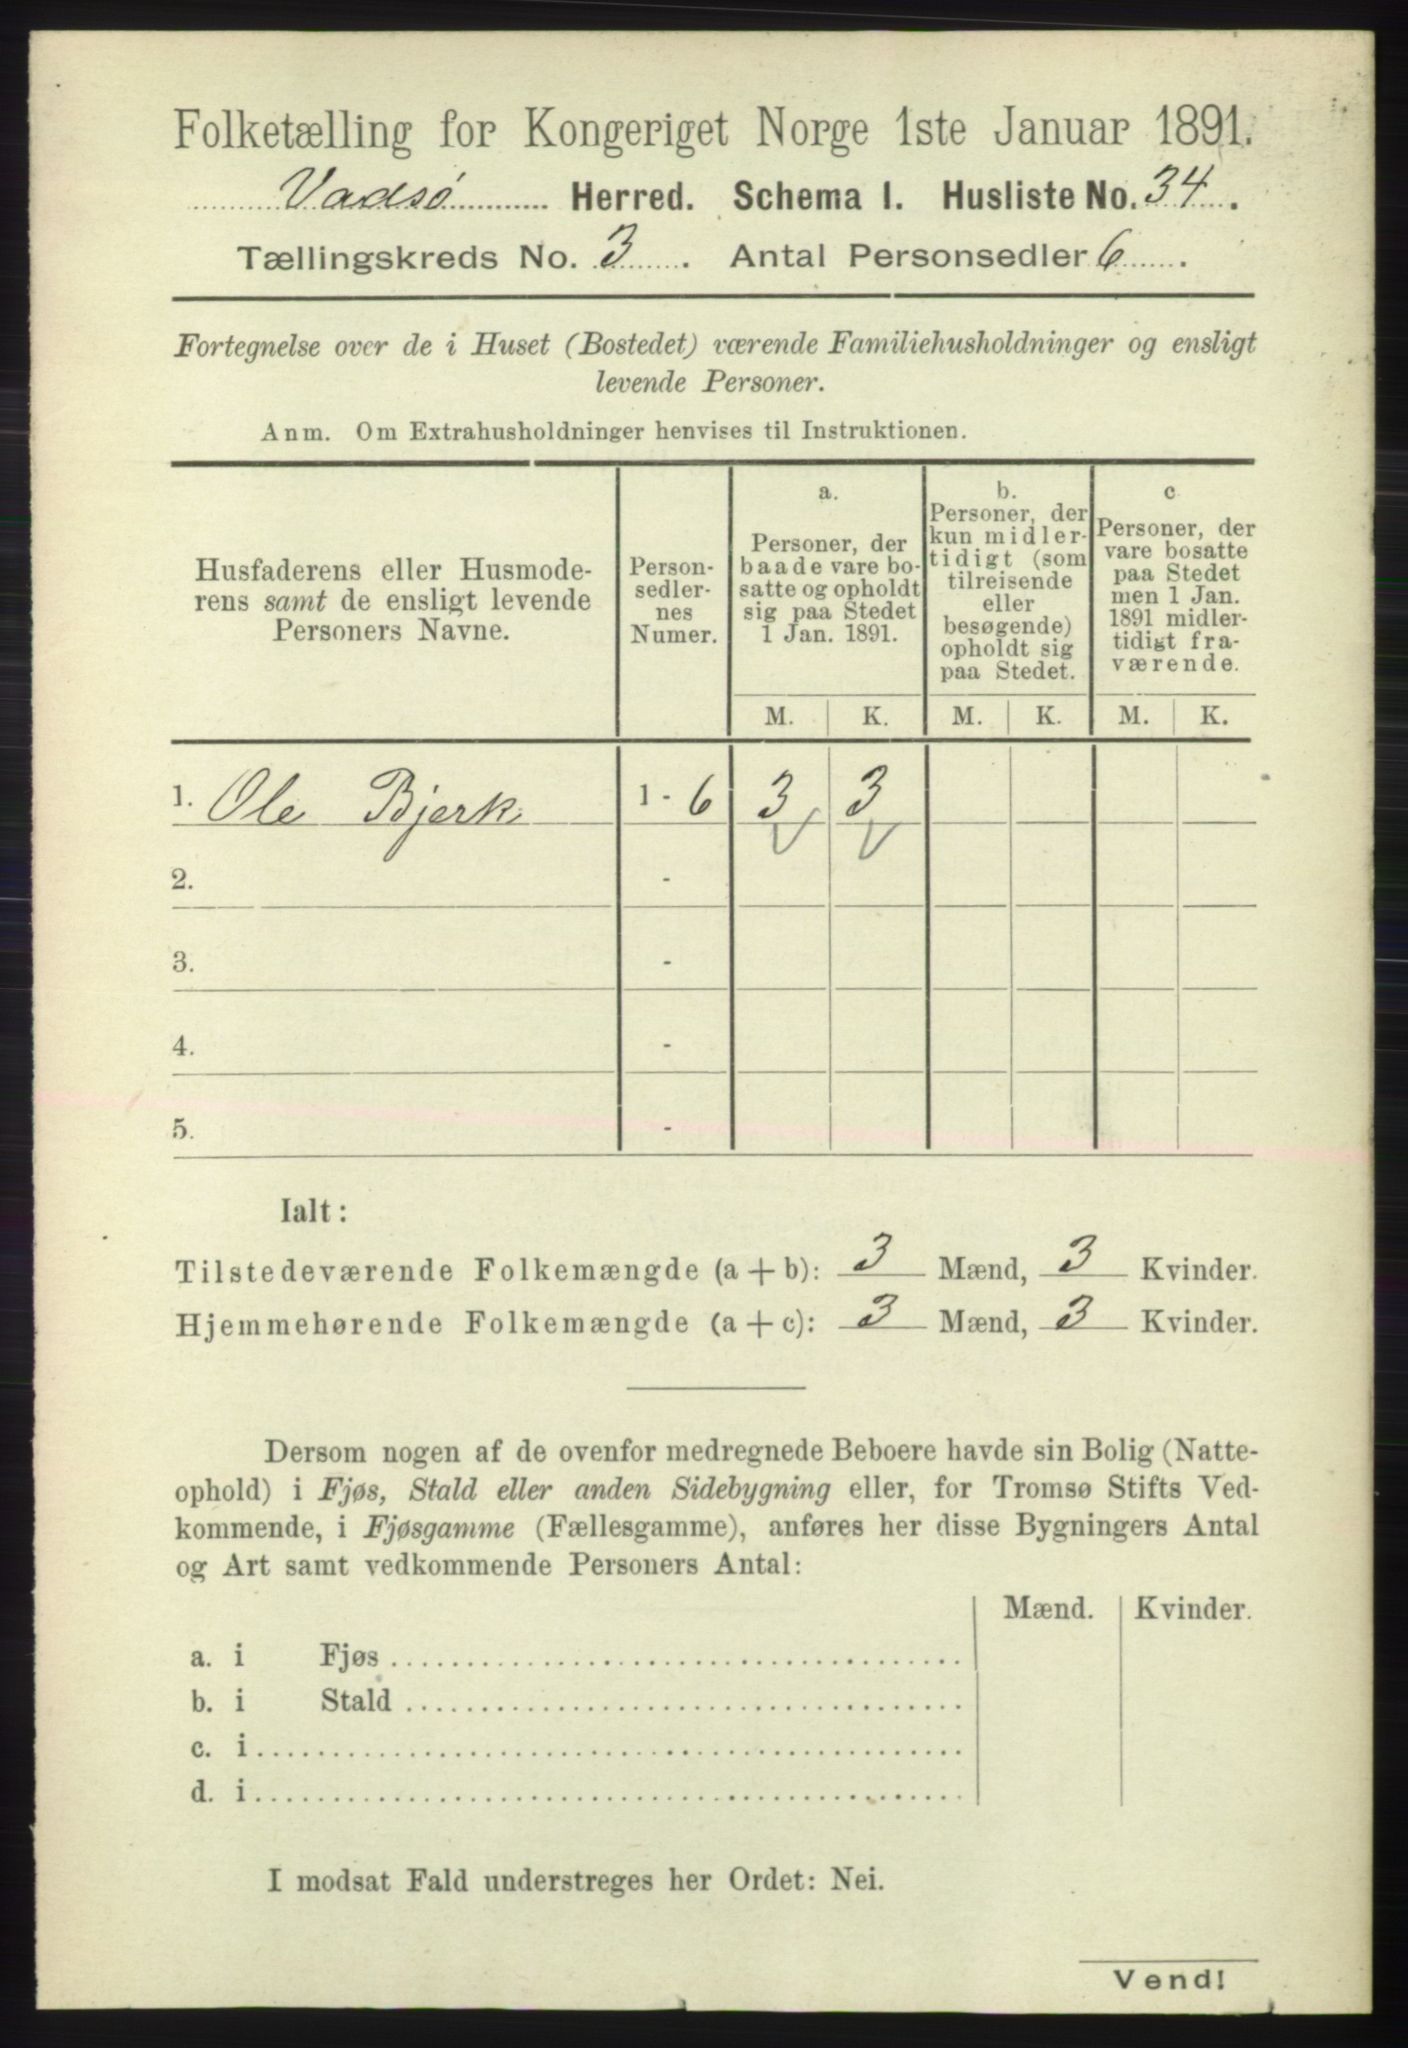 Folketælling for Kongeriget Norge 1ste Januar 1891.
Vadsø Herred. Schema I. Husliste No. 34.
Tællingskreds No. 3. Antal Personsedler 6.
Fortegnelse over de i Huset (Bostedet) værende Familiehusholdninger og ensligt
levende Personer.
Anm. Om Extrahusholdninger henvises til Instruktionen.
Husfaderens eller Husmode-
rens samt de ensligt levende
Personers Navne.
Person-
sedler-
nes
Numer.
a.
Personer, der
baade vare bo-
satte og opholdt
sig paa Stedet
1 Jan. 1891.
b.
Personer, der
kun midler-
tidigt (som
tilreisende
eller
besøgende)
opholdt sig
paa Stedet.
c
Personer, der
vare bosatte
paa Stedet
men 1 Jan.
1891 midler-
tidigt fra-
værende.
M. K. M. K. M. K.
1. Ole Bjerk 1 - 6 3 3
2. -
3. -
4. -
5. -
Ialt:
Tilstedeværende Folkemængde (a + b): 3 Mænd, 3 Kvinder.
Hjemmehørende Folkemængde (a + c): 3 Mænd, 3 Kvinder.
Dersom nogen af de ovenfor medregnede Beboere havde sin Bolig (Natte-
ophold) i Fjøs, Stald eller anden Sidebygning eller, for Tromsø Stifts Ved-
kommende, i Fjøsgamme (Fællesgamme), anføres her disse Bygningers Antal
og Art samt vedkommende Personers Antal:
Mænd. Kvinder.
a. i Fjøs
b. i Stald
c. i
d. i
I modsat Fald understreges her Ordet: Nei.
Vend!